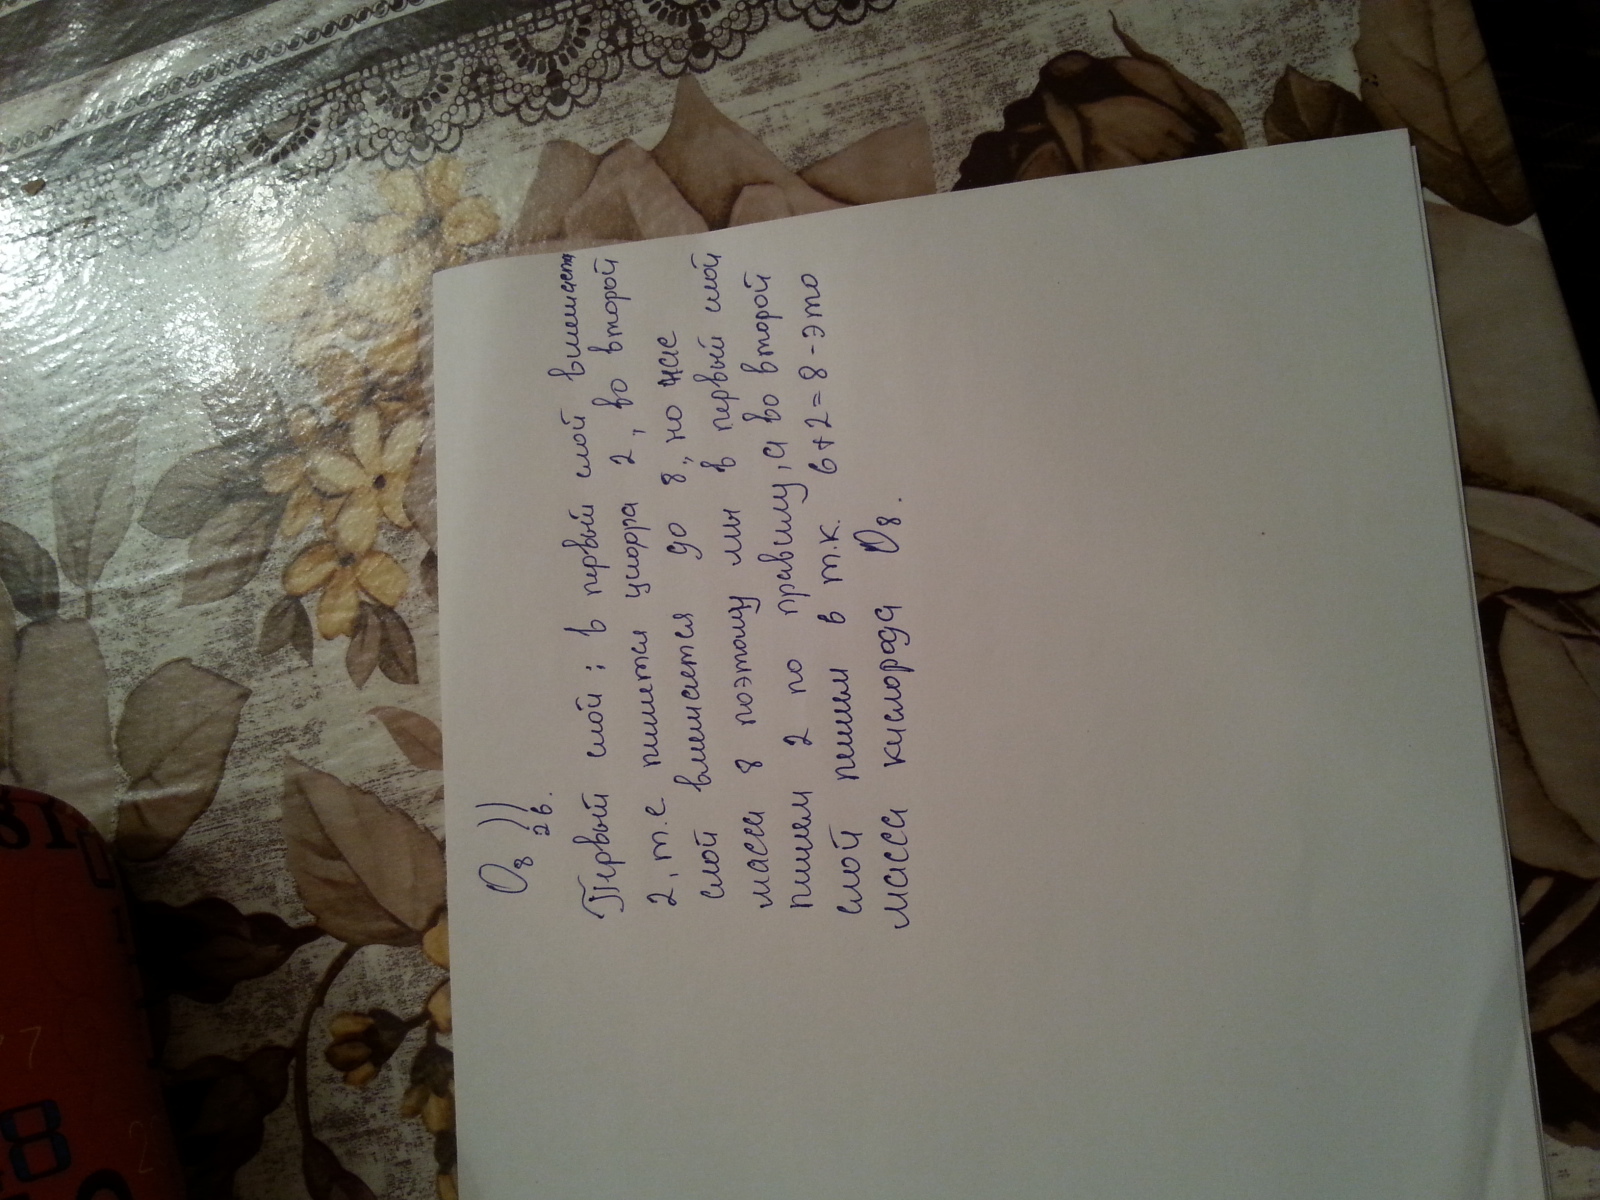 O₈ ))
2 6.
Первый слой ; в первый слой вмещается
2, т.е пишется цифра 2, во второй
слой вмещается до 8, но у нас
масса 8 поэтому мы в первый слой
пишем 2 по правилу, а во второй
слой пишем 6 т.к. 6+2=8-это
масса кислорода O₈.